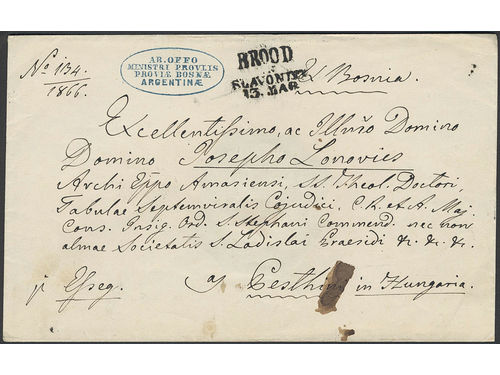 No 134.
1866.
AR. OFFO
MINISTRI PROVLIS
PROVIÆ BOSNÆ
ARGENTINÆ
BROOD
SLAVONIEN
13. MAR
Ex Bosnia.
Excellentissimo, ac Illuśo Domino
Domino Josepho Lonovics
Archi Eppo Amasiensi, SS. Theol. Doctori,
Tabulae Septemviralis Cojudici, C. R. et A. Maj.
Cons. Insig. Ord. S. Stephani Commend. nec non
almae Societatis S. Ladislai Praesidi &. &. &.
p Esseg. a Pesthini in Hungaria.